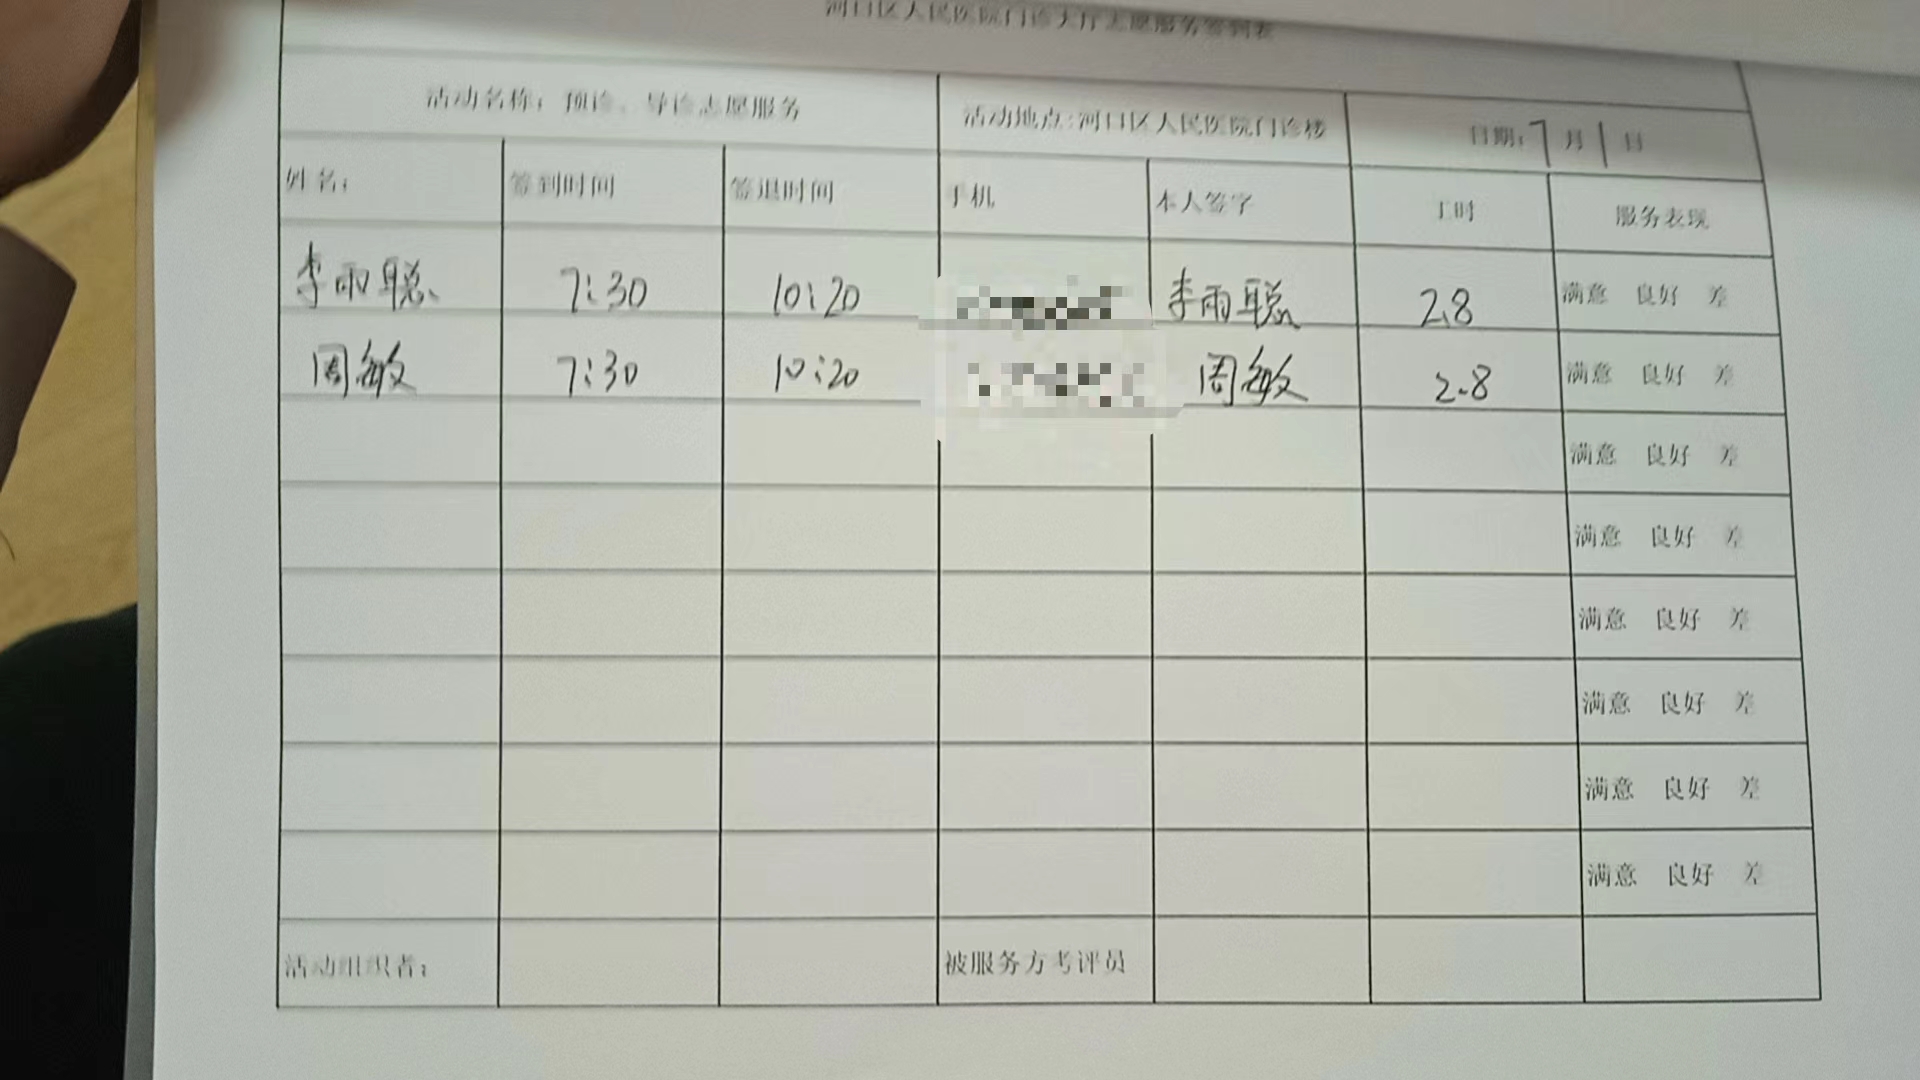 河口区人民医院门诊大厅志愿服务签到表
活动名称：预诊、导诊志愿服务 活动地点:河口区人民医院门诊楼 日期：7月1日
姓名： 签到时间 签退时间 手机 本人签字 工时 服务表现
李雨聪 7:30 10:20 李雨聪 2.8 满意 良好 差
周敏 7:30 10:20 周敏 2.8 满意 良好 差
满意 良好 差
满意 良好 差
满意 良好 差
满意 良好 差
满意 良好 差
满意 良好 差
活动组织者： 被服务方考评员